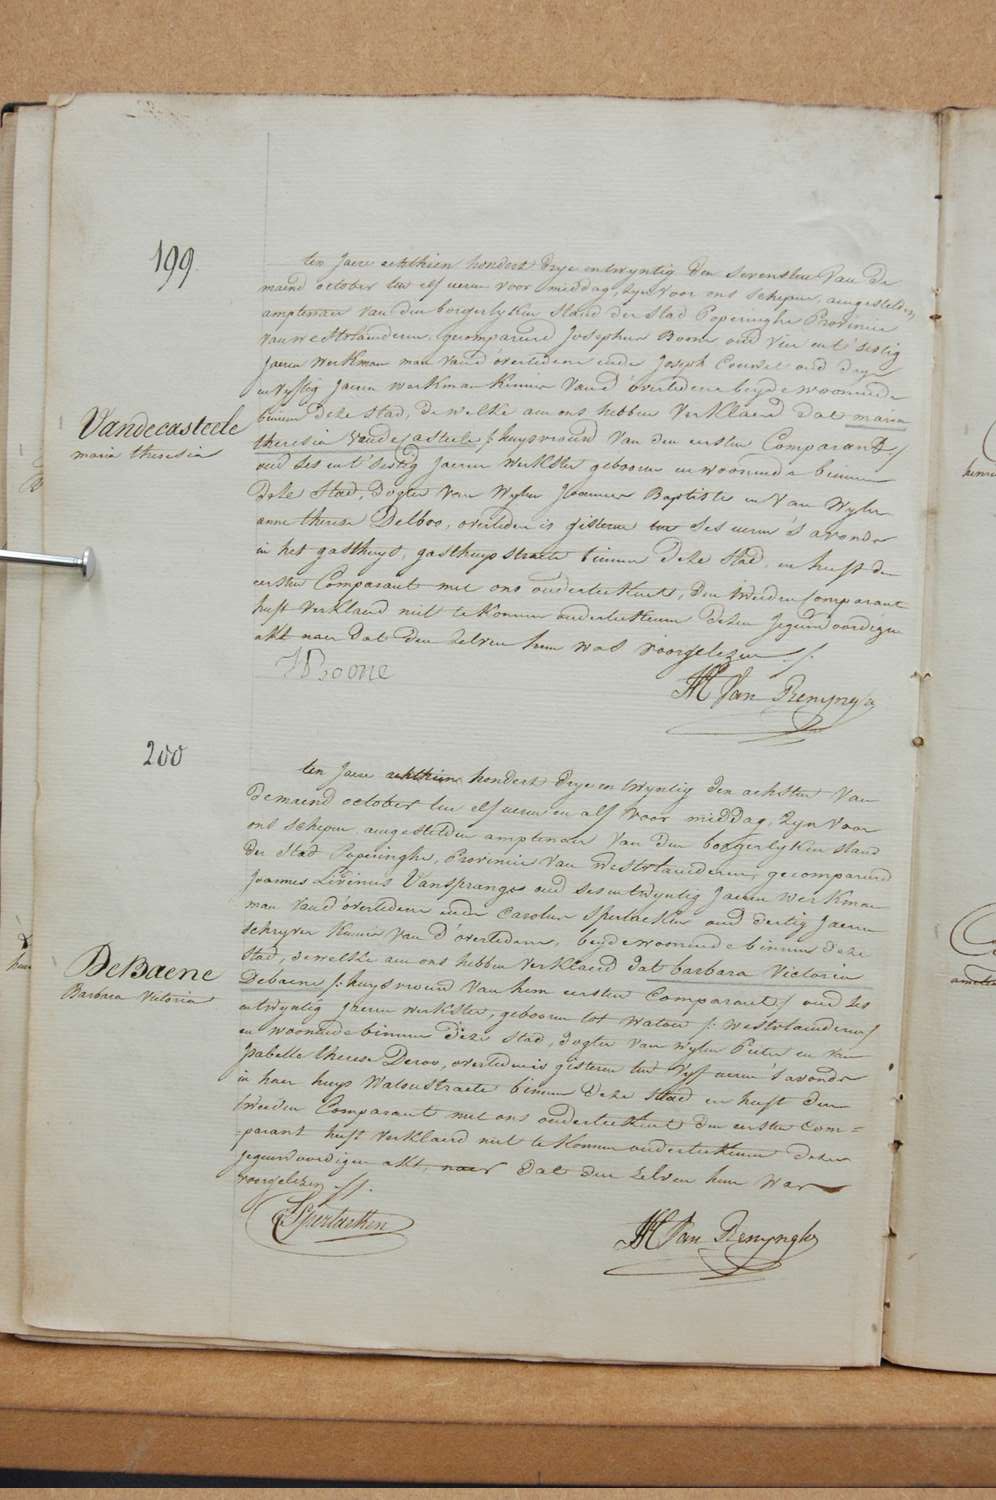 199
ten Jaere achthien hondert drye en twyntig den sevensten van de
maend october ten elf ueren voor middag, zyn voor ons schepen, aengestelden
amptenaer van den borgerlyken stand der stad Poperinghe Provincie
van westvlaenderen, gecompareerd Josephus Boone oud vier en t'sestig
Jaeren werkman man vand'overledene ende Joseph Couwet oud dry
en vyftig Jaeren werkman kennis vand'overledene beyde woonende
binnen deze stad, de welke aen ons hebben verklaerd dat maria
theresia vandecasteele /: huysvrouw van den eersten Comparant /
oud ses en t'sestig Jaeren werkster gebooren en woonende binnen
deze stad, dogter van wylen Joannes Baptiste en van wylen
anne therese Delboo, overleden is gisteren ten ses ueren 's avonds
in het gasthuys, gasthuys straete binnen deze stad, en heeft den
eersten Comparant met ons onderteekent, den tweeden Comparant
heeft verklaerd niet te konnen onderteekenen dezen jegenwoordigen
akt naer dat den zelven hem was voorgelezen ./.
Vandecasteele
maria theresia
J Boone
Van Renynghe
200
ten Jaere achthien hondert drye en twyntig den achsten van
de maend october ten elf ueren en alf voor middag, zyn voor
ons schepen aengestelden amptenaer van den borgerlyken stand
der stad Poperinghe, Provincie van westvlaenderen, gecompareerd
Joannes Livinus Vanspranghe oud ses en twyntig Jaeren werkman
man vand'overledene ende Carolus Spertaeken oud dertig Jaeren
schryver kennis van d'overledene, beyde woonende binnen deze
stad, de welke aen ons hebben verklaerd dat barbara victoria
Debaene /: huysvrouw van hem eersten Comparant / oud ses
en twyntig Jaeren werkster, gebooren tot watou /: westvlaenderen /
en woonende binnen deze stad, dogter van wylen Pieter en van
Isabelle therese Deroo, overleden is gisteren ten vyf ueren 's avonds
in haer huys watoustraete binnen deze stad en heeft den
tweeden Comparant met ons onderteekent den eersten Com=
=parant heeft verklaerd niet te konnen onderteekenen dezen
jegenwoordigen akt, naer dat den zelven hem was
voorgelezen ./.
DeBaene
Barbara Victoria
Spertaeken
Van Renynghe